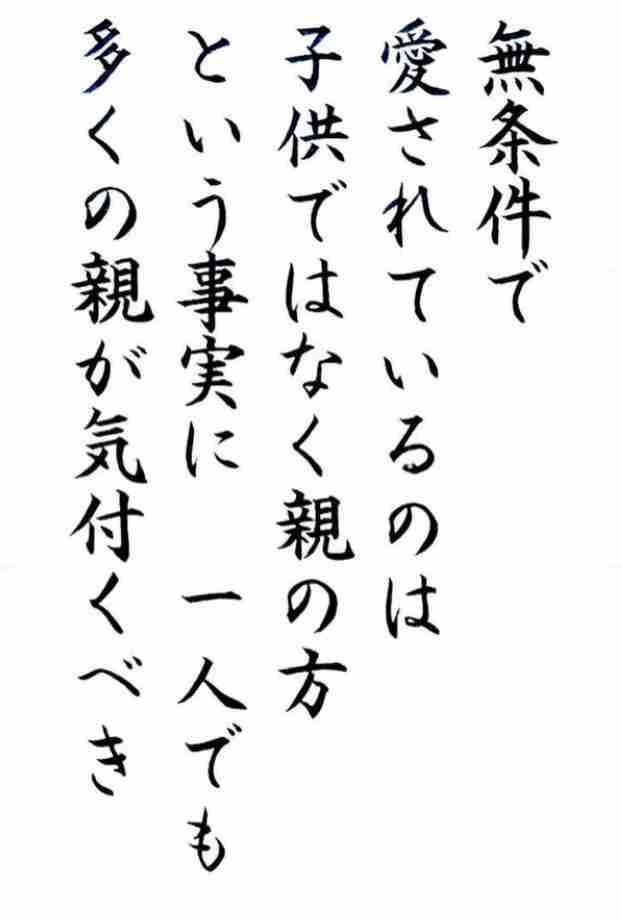 無条件で
愛されているのは
子供ではなく親の方
という事実に　一人でも
多くの親が気付くべき